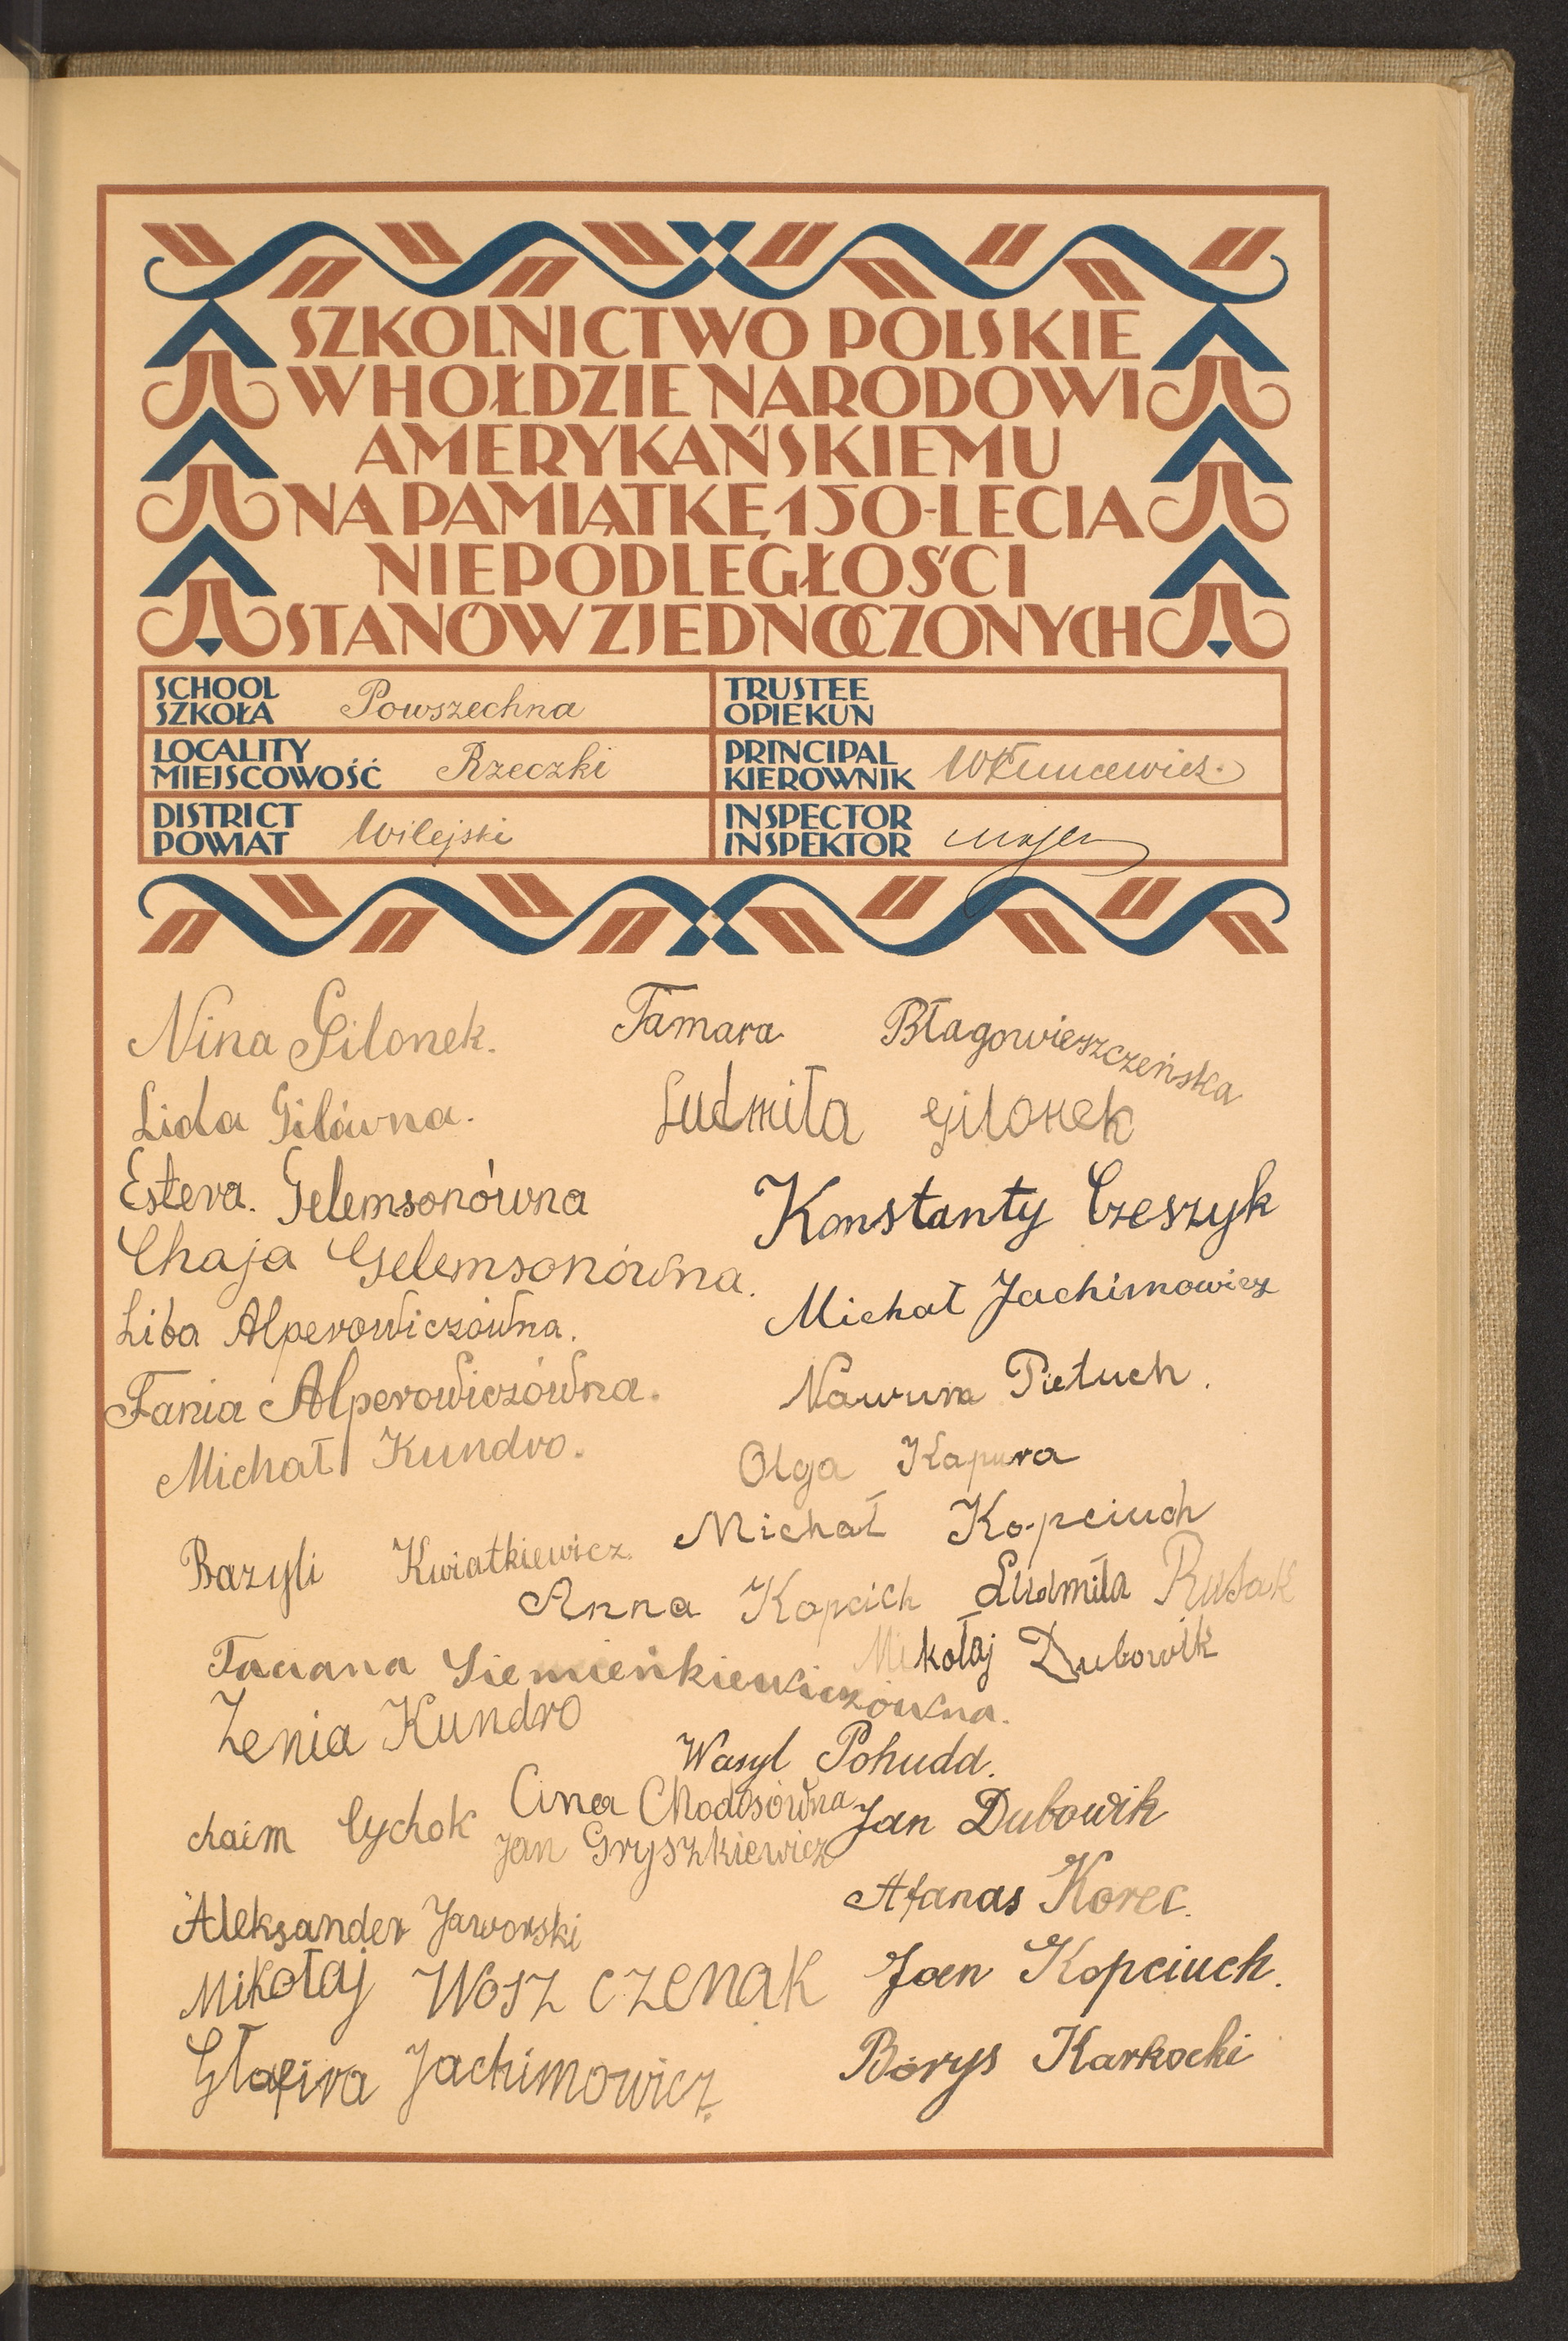 SZKOLNICTWO POLSKIE
W HOŁDZIE NARODOWI
AMERYKAŃSKIEMU
NA PAMIĄTKĘ 150-LECIA
NIEPODLEGŁOŚCI
STANÓW ZJEDNOCZONYCH
SCHOOL
SZKOŁA Powszechna
TRUSTEE
OPIEKUN
LOCALITY
MIEJSCOWOŚĆ Rzeczki
PRINCIPAL
KIEROWNIK
DISTRICT
POWIAT Wilejski
INSPECTOR
INSPEKTOR
Nina Gilonek.
Tamara Błagowieszczeńska
Lida Gilówna.
Ludmiła Gilonek
Estera. Gelemsonówna
Konstanty Czeszyk
Chaja Gelemsonówna.
Michał Jachimowicz
Liba Alperowiczówna.
Fania Alperowiczówna.
Nawum Pietuch.
Michał Kundro.
Olga Kapura
Michał Kopciuch
Bazyli Kwiatkiewicz.
Anna Kopcich
Ludmiła Rusak
Mikołaj Dubowik
Taciana Siemieńkiewiczówna.
Zenia Kundro
Wasyl Pohudd.
Cina Chodosówna
Jan Dubowik
chaim Cychok
Jan Gryszkiewicz
Afanas Korec.
Aleksander Jaworski
Mikołaj Woszczenak
Jan Kopciuch.
Głafira Jachimowicz.
Borys Karkocki